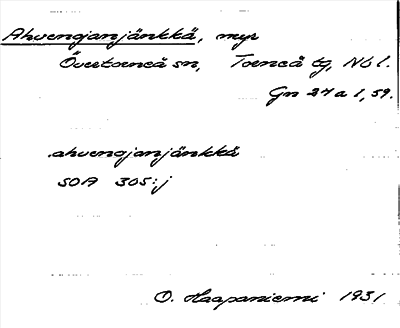 Ahvenojanjänkkä, myr
Övertorneå sn, Torneå tg, Nbl.
Gn 24 a 1, 59.
ahvenojanjänkkä
SOA 305:j
O. Haapaniemi 1931